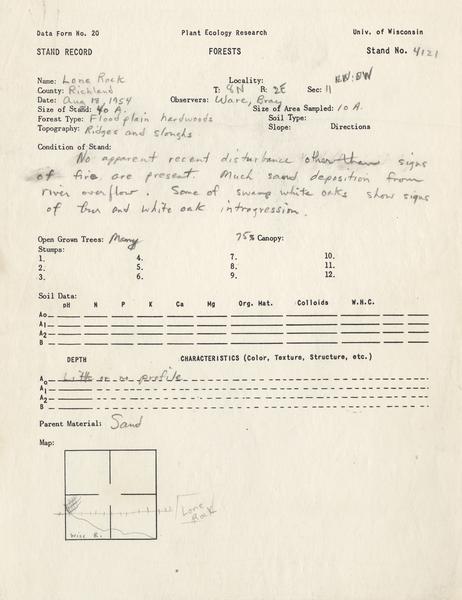 Data Form No. 20 Plant Ecology Research Univ. of Wisconsin
STAND RECORD FORESTS Stand No. 4121
Name: Lone Rock Locality: NW:SW
County: Richland T: 8N R: 2E Sec: 11
Date: Aug 18, 1954 Observers: Ware, Bray
Size of Stand: 40 A. Size of Area Sampled: 10 A.
Forest Type: Floodplain hardwoods Soil Type:
Topography: Ridges and sloughs Slope: Directions
Condition of Stand:
No apparent recent disturbance other than signs
of fire are present. Much sand deposition from
river overflow. Some of swamp white oaks show signs
of bur and white oak introgression.
Open Grown Trees: Many 75% Canopy:
Stumps:
1. 4. 7. 10.
2. 5. 8. 11.
3. 6. 9. 12.
Soil Data:
pH N P K Ca Mg Org. Mat. Colloids W.H.C.
Ao
A1
A2
B
DEPTH CHARACTERISTICS (Color, Texture, Structure, etc.)
Ao Little or no profile
A1
A2
B
Parent Material: Sand
Map:
Lone
Rock
Wisc R.